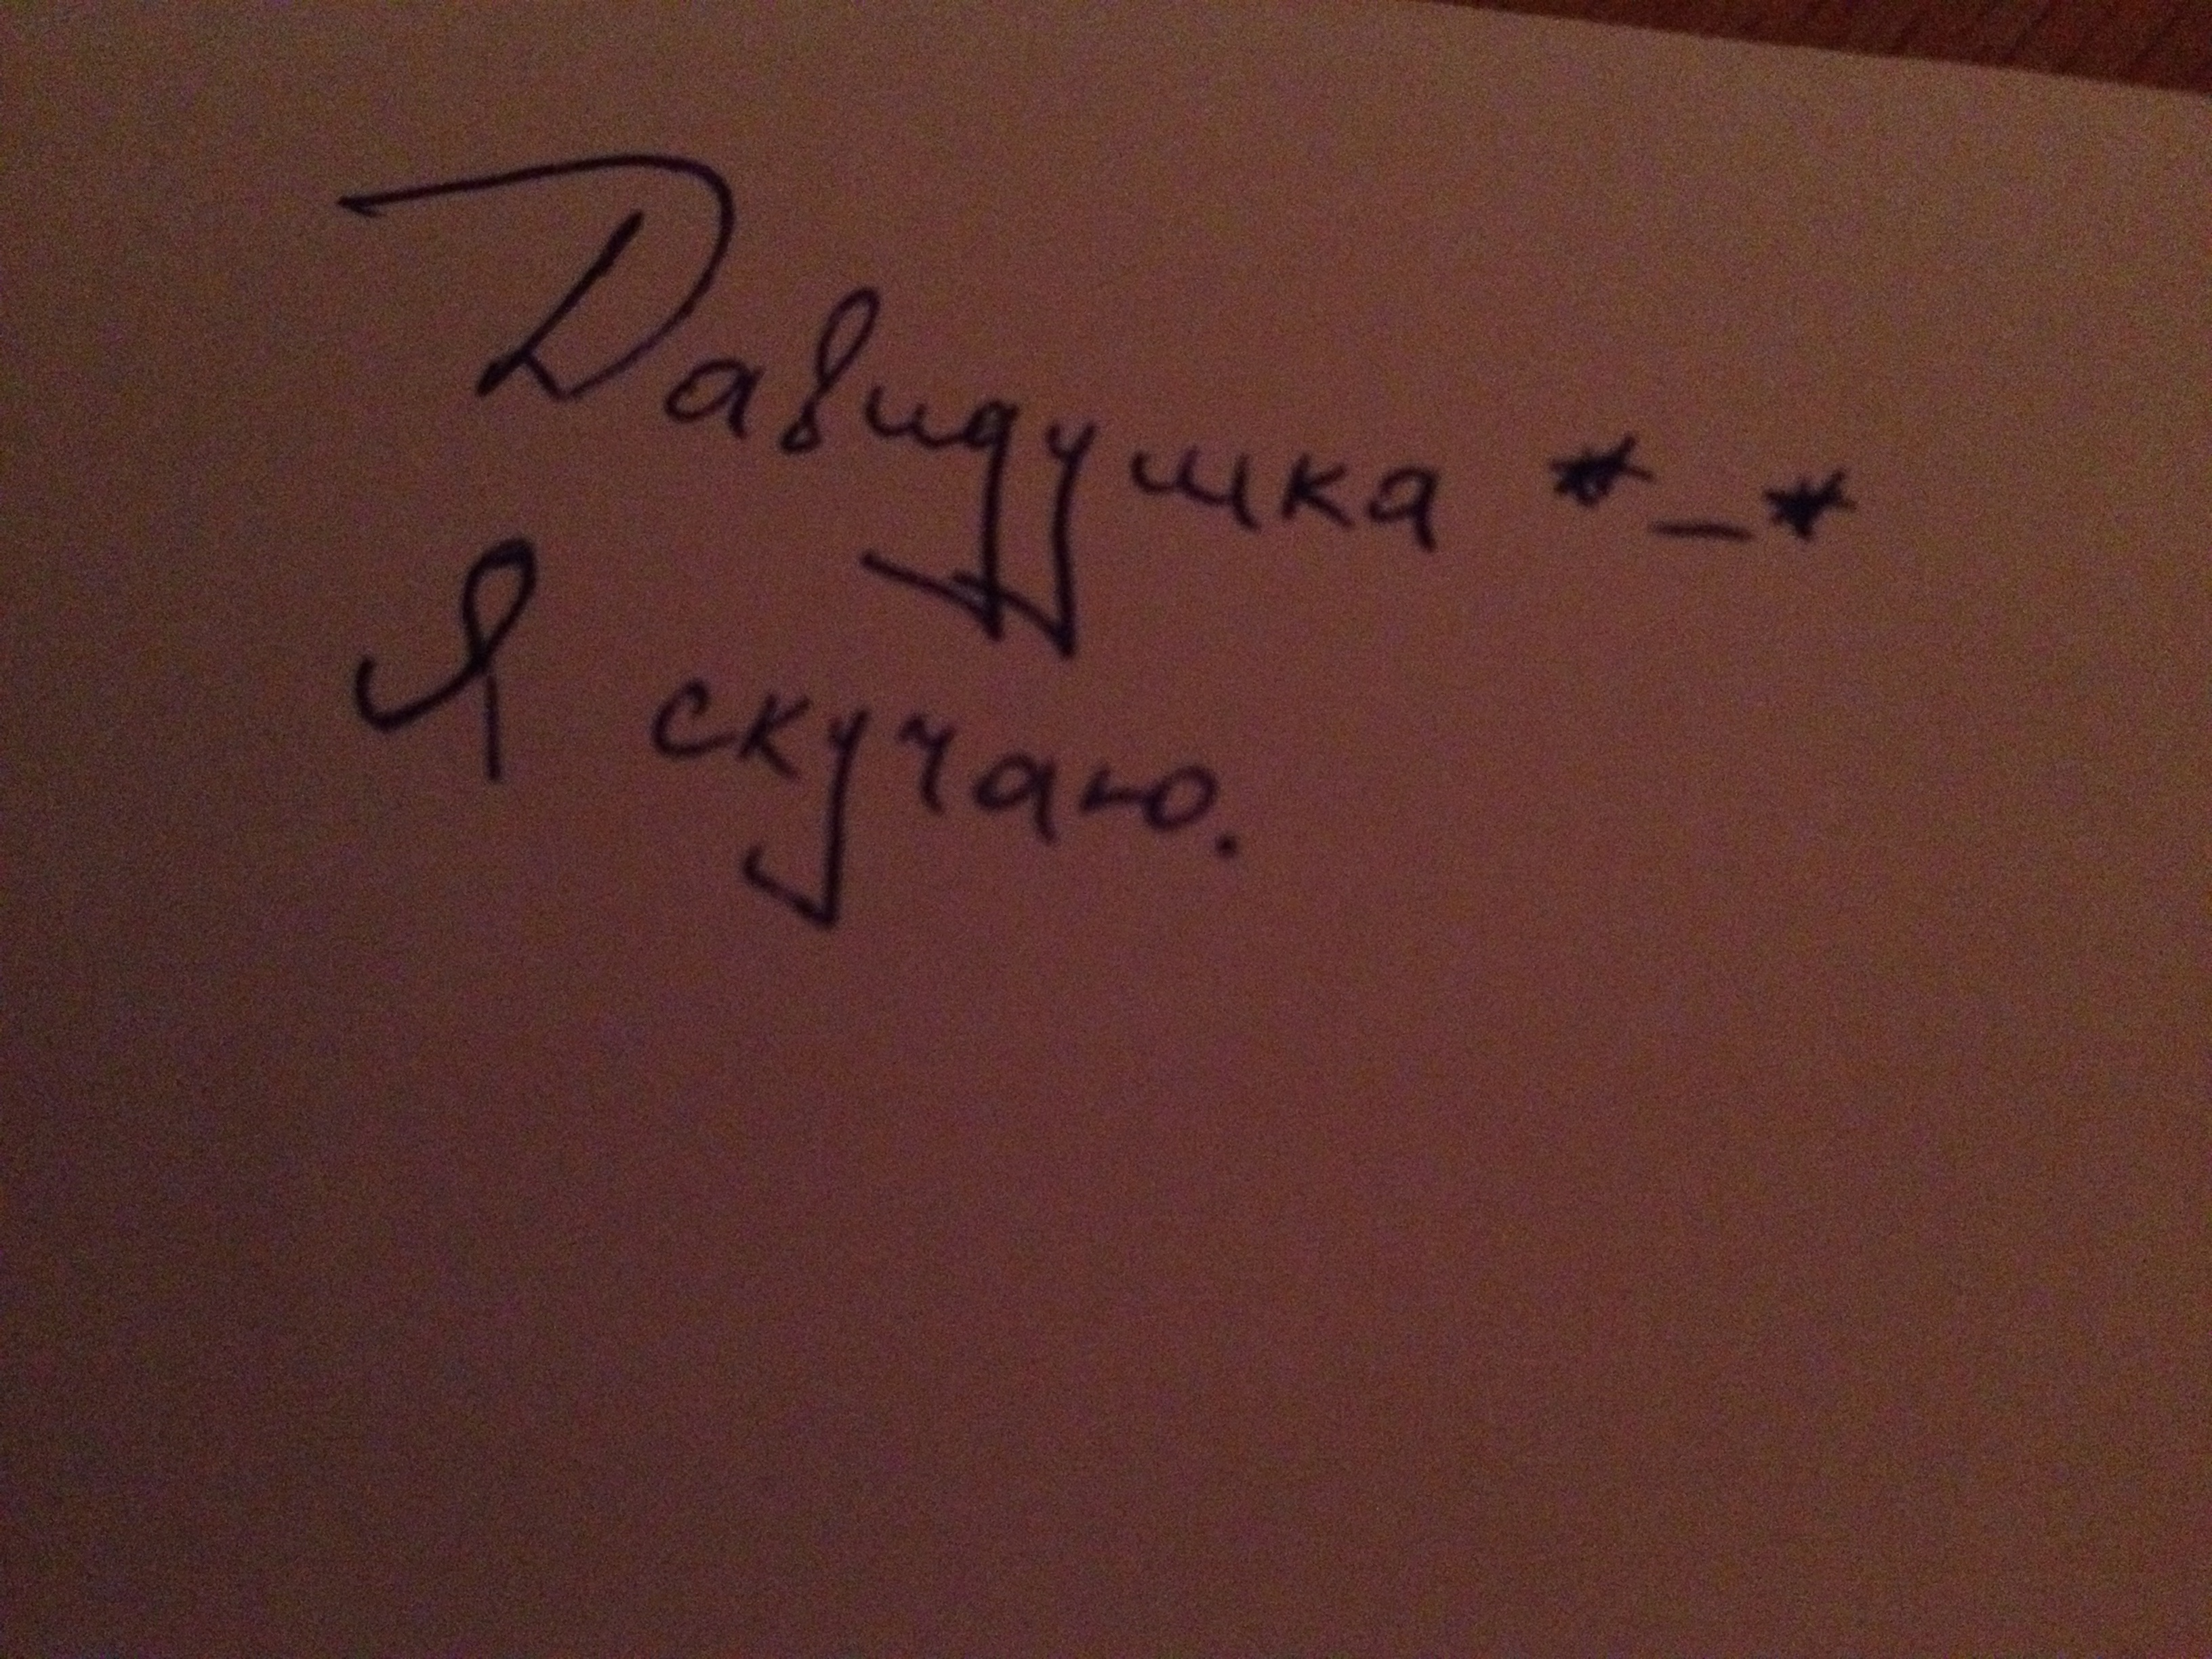 Давидушка *_*
Я скучаю.